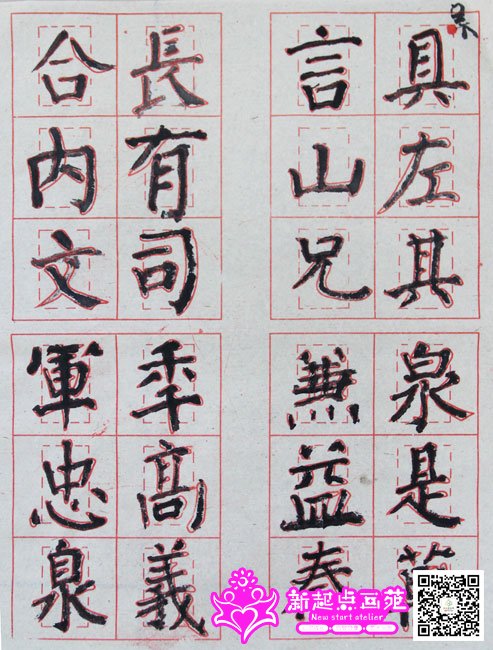 具左其
言山兄
長有司
合内文
泉是
益
季高義
軍忠泉
新起点画苑
New start atelier